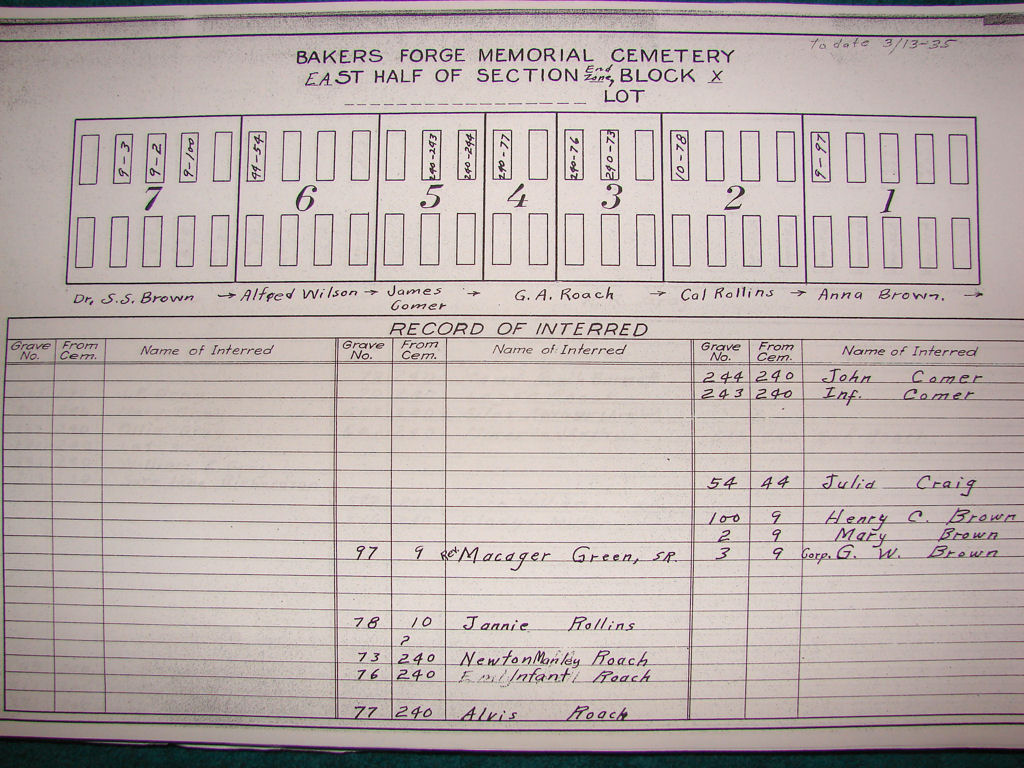 To date 3/13-35
BAKERS FORGE MEMORIAL CEMETERY
EAST HALF OF SECTION End Zone, BLOCK X
LOT
9-3 9-2 9-100 44-54 240-243 240-244 240-77 240-76 240-73 10-78 9-97
7 6 5 4 3 2 1
Dr. S.S. Brown → Alfred Wilson → James Comer → G. A. Roach → Cal Rollins → Anna Brown. →
RECORD OF INTERRED
Grave No. From Cem. Name of Interred Grave No. From Cem. Name of Interred Grave No. From Cem. Name of Interred
244 240 John Comer
243 240 Inf. Comer
54 44 Julia Craig
100 9 Henry C. Brown
2 9 Mary Brown
97 9 Macager Green, SR. 3 9 Corp. G. W. Brown
78 10 Jannie Rollins
?
73 240 Newton Manley Roach
76 240 Infant Roach
77 240 Alvis Roach